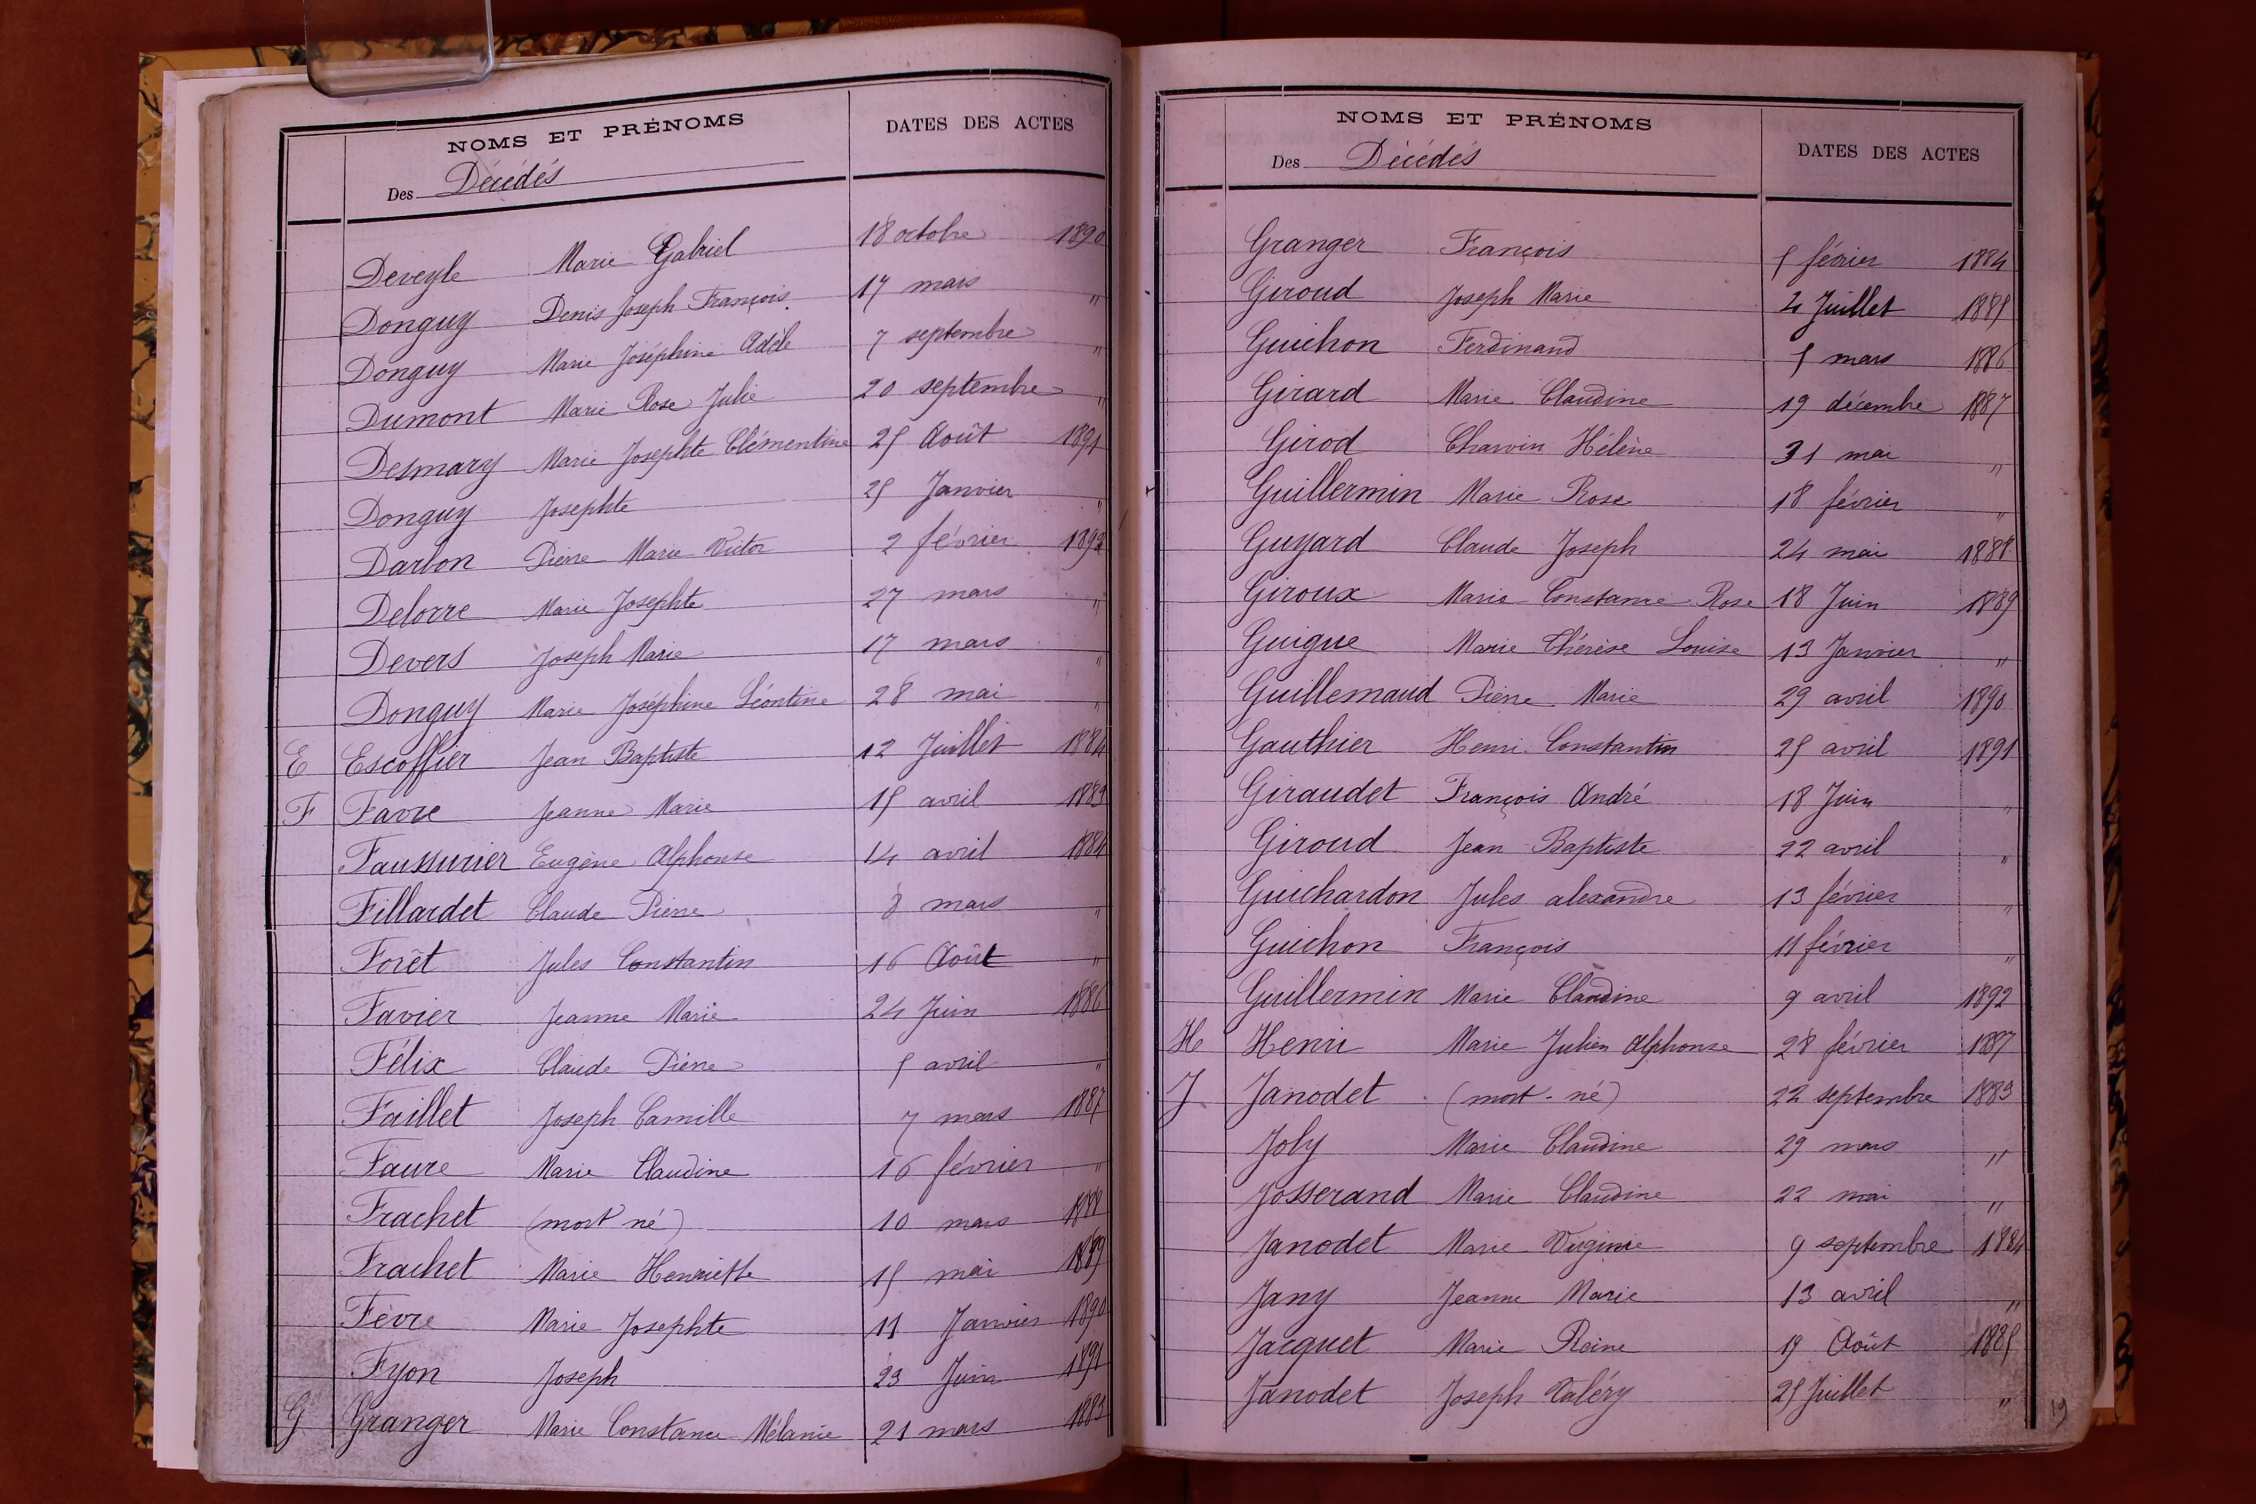 NOMS ET PRÉNOMS
DATES DES ACTES
Des Décédés
Deveyle Marie Gabriel 18 octobre 1890
Donguy Denis Joseph François 17 mars "
Donguy Marie Joséphine Adèle 7 septembre "
Dumont Marie Rose Julie 20 septembre "
Desmary Marie Josephte Clémentine 25 Août 1891
Donguy Josephte 25 Janvier "
Darbon Pierre Marie Victor 2 février 1892
Delorre Marie Josephte 27 mars "
Devers Joseph Marie 17 mars "
Donguy Marie Joséphine Léontine 28 mai "
E Escoffier Jean Baptiste 12 Juillet 1884
F Favre Jeanne Marie 15 avril 1883
Faussurier Eugène Alphonse 14 avril 1884
Fillardet Claude Pierre 8 mars "
Forêt Jules Constantin 16 Août "
Favier Jeanne Marie 24 Juin 1886
Félix Claude Pierre 5 avril "
Faillet Joseph Camille 7 mars 1887
Faure Marie Claudine 16 février "
Frachet (mort né) 10 mars 1888
Frachet Marie Henriette 15 mai 1889
Fèvre Marie Josephte 11 Janvier 1890
Fyon Joseph 23 Juin 1891
G Granger Marie Constance Mélanie 21 mars 1883
NOMS ET PRÉNOMS
DATES DES ACTES
Des Décédés
Granger François 5 février 1884
Giroud Joseph Marie 4 Juillet 1885
Guichon Ferdinand 5 mars 1886
Girard Marie Claudine 19 décembre 1887
Girod Charvin Hélène 31 mai "
Guillermin Marie Rose 18 février "
Guyard Claude Joseph 24 mai 1888
Giroux Marie Constance Rose 18 Juin 1889
Guigue Marie Thérèse Louise 13 Janvier "
Guillemaud Pierre Marie 29 avril 1890
Gauthier Henri Constantin 25 avril 1891
Giraudet François André 18 Juin "
Giroud Jean Baptiste 22 avril "
Guichardon Jules alexandre 13 février "
Guichon François 11 février "
Guillermin Marie Claudine 9 avril 1892
H Henri Marie Julien Alphonse 28 février 1887
J Janodet (mort-né) 22 septembre 1883
Joly Marie Claudine 29 mars "
Josserand Marie Claudine 22 mai "
Janodet Marie Virginie 9 septembre 1884
Jany Jeanne Marie 13 avril "
Jacquet Marie Reine 19 Août 1885
Janodet Joseph Valéry 25 Juillet "
19